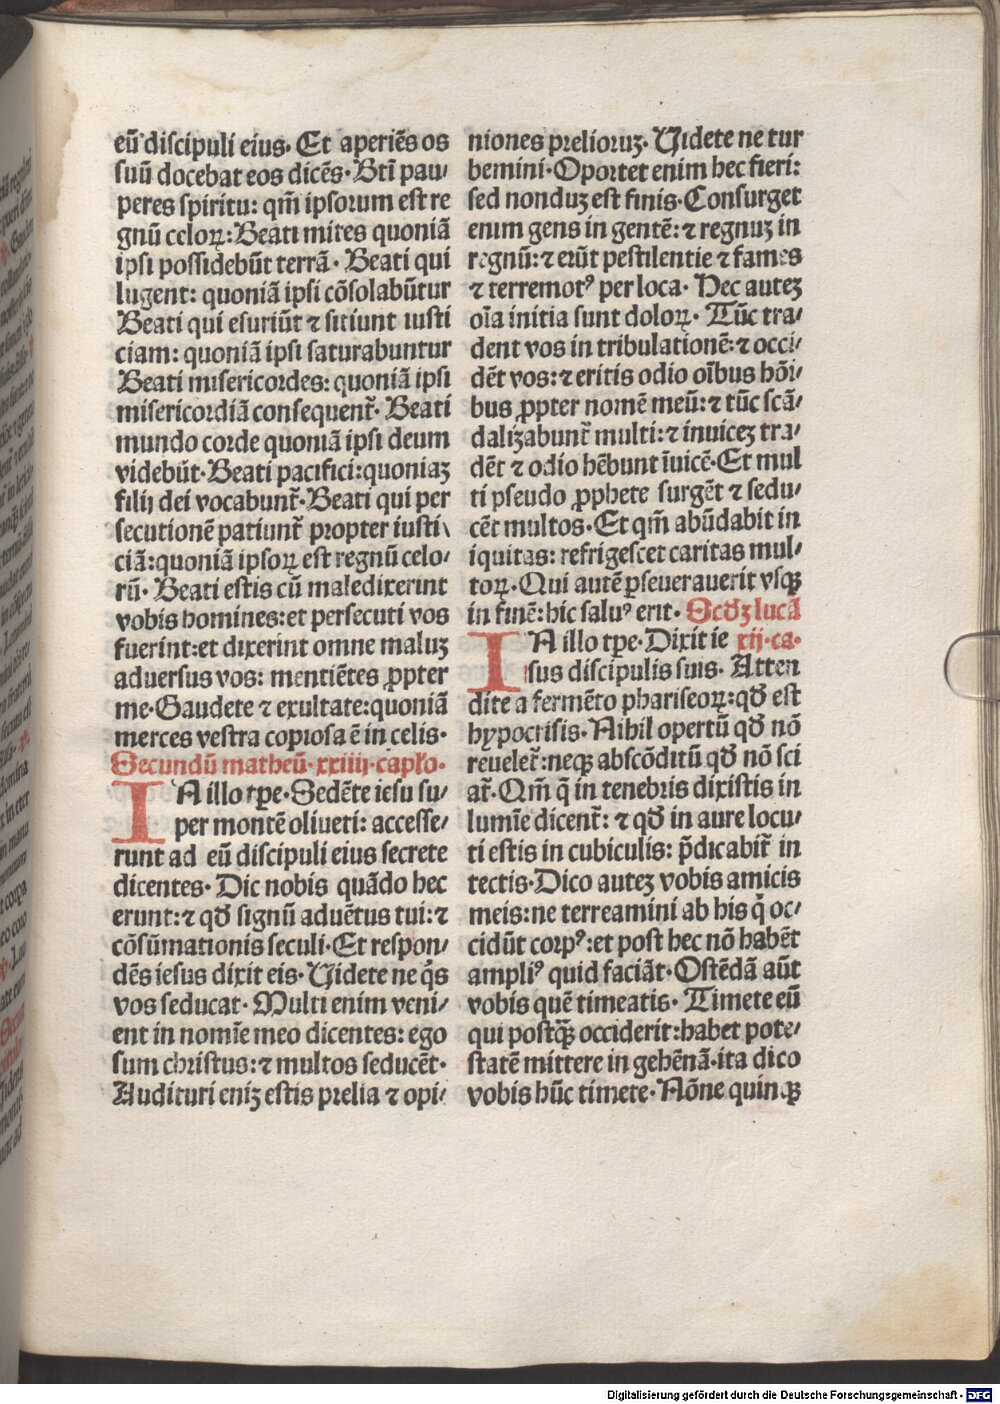 eū discipuli eius· Et aperiēs os
suū docebat eos dicēs· Bti̅ pau/
peres spiritu: qm̅ ipsorum est re
gnū celoꝝ: Beati mites quoniā
ipsi possidebūt terrā· Beati qui
lugent: quoniā ipsi cōsolabūtur
Beati qui esuriūt ⁊ sitiunt iusti
ciam: quoniā ipsi saturabuntur
Beati misericordes: quoniā ipsi
misericordiā consequent̅· Beati
mundo corde quoniā ipsi deum
videbūt· Beati pacifici: quoniaꝫ
filij dei vocabunt̅· Beati qui per
secutionē patiunt̅ propter iusti\
ciā: quoniā ipsoꝝ est regnū celo/
rū· Beati estis cū maledixerint
vobis homines: et persecuti vos
fuerint: et dixerint omne maluꝫ
adversus vos: mentiētes ꝓpter
me· Gaudete ⁊ exultate: quoniā
merces vestra copiosa ē in celis·
Secundū matheū· xxiiij· capl̅o·
IN illo tp̅e· Sedēte iesu su/
per montē oliveti: accesse/
runt ad eū discipuli eius secrete
dicentes· Dic nobis quādo hec
erunt: ⁊ qd̅ signū aduētus tui: ⁊
cōsūmationis seculi· Et respon/
dēs iesus dixit eis· Videte ne q̅s
vos seducat· Multi enim veni/
ent in nomīe meo dicentes: ego
sum christus: ⁊ multos seducēt·
Audituri eniꝫ estis prelia ⁊ opi/
niones prelioruꝫ· Videte ne tur
bemini· Oportet enim hec fieri:
sed nonduꝫ est finis· Consurget
enim gens in gentē: ⁊ regnuꝫ in
regnū: ⁊ erūt pestilentie ⁊ fames
⁊ terremotꝰ per loca· Hec auteꝫ
oīa initia sunt doloꝝ· Tūc tra/
dent vos in tribulationē: ⁊ occi/
dēt vos: ⁊ eritis odio oībus hōi/
bus ꝓpter nomē meū: ⁊ tūc scā/
dalizabunt̅ multi: ⁊ inuiceꝫ tra/
dēt ⁊ odio hēbunt īuicē· Et mul
ti pseudo ꝓphete surgēt ⁊ sedu/
cēt multos· Et qm̅ abūdabit in
iquitas: refrigescet caritas mul/
toꝝ· Qui autē ꝑseuerauerit vsqꝫ
in finē: hic saluꝰ erit· Scd̅ꝫ lucā
IN illo tp̅e· Dixit ie xij· ca·
sus discipulis suis· Atten
dite a fermēto phariseoꝝ: qd̅ est
hypocrisis· Nihil opertū qd̅ nō
reuelet̅: neqꝫ abscōditū qd̅ nō sci
at̅· Qm̅ q̅ in tenebris dixistis in
lumīe dicent̅: ⁊ qd̅ in aure locu/
ti estis in cubiculis: p̅dicabit̅ in
tectis· Dico auteꝫ vobis amicis
meis: ne terreamini ab his q̅ oc/
cidūt corpꝰ: et post hec nō habēt
ampliꝰ quid faciāt· Ostēdā aūt
vobis quē timeatis· Timete eū
qui postqꝫ̅ occiderit: habet pote/
statē mittere in gehēnā· ita dico
vobis hūc timete· Nōne quinqꝫ
Digitalisierung gefördert durch die Deutsche Forschungsgemeinschaft - DFG